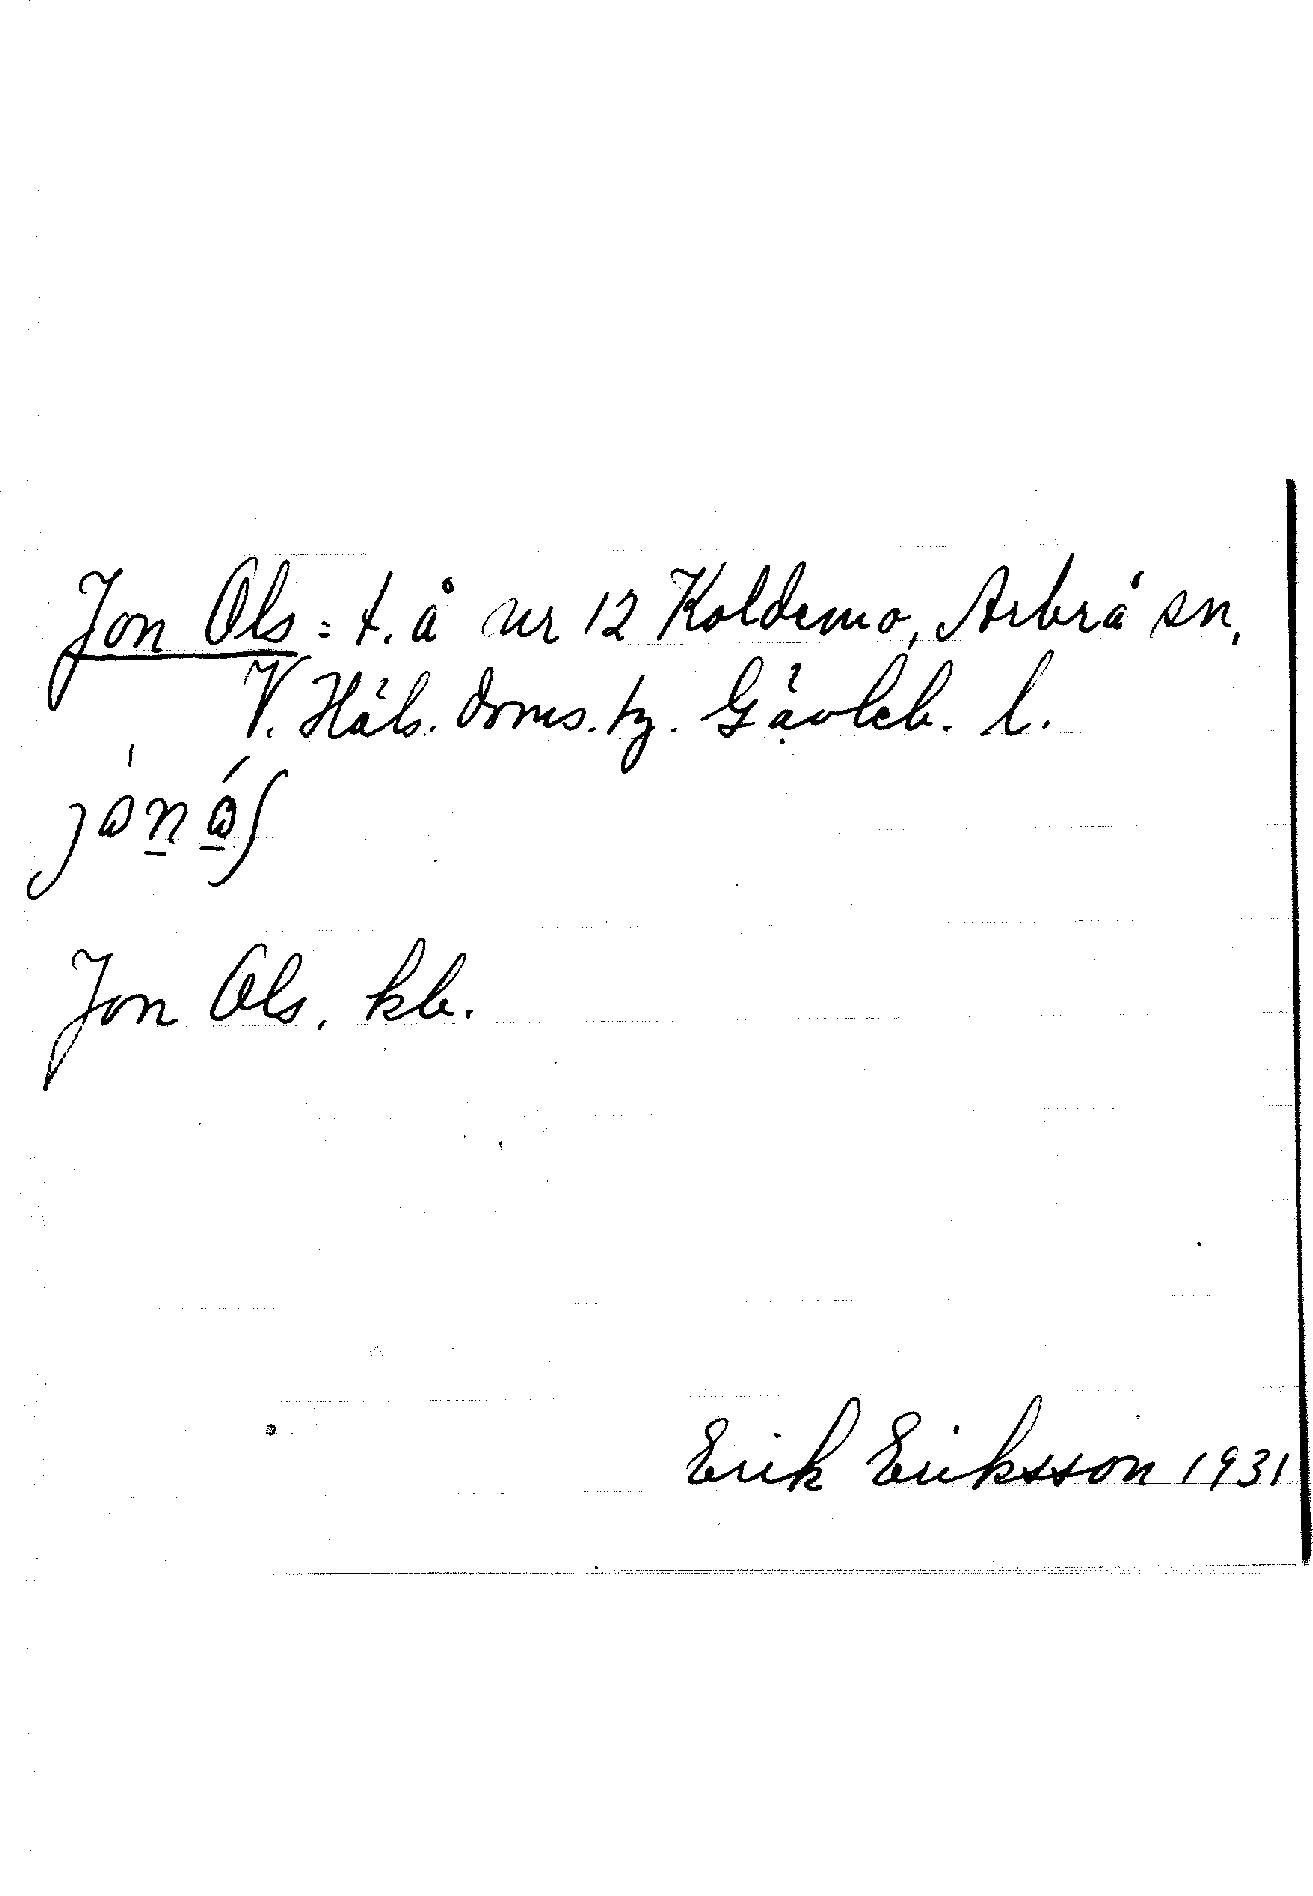 Jon Ols = t. å nr 12 Koldemo, Arbrå sn,
V. Häls. doms. tg. Gävleb. l.
Jon Ols, kb.
Erik Eriksson 1931